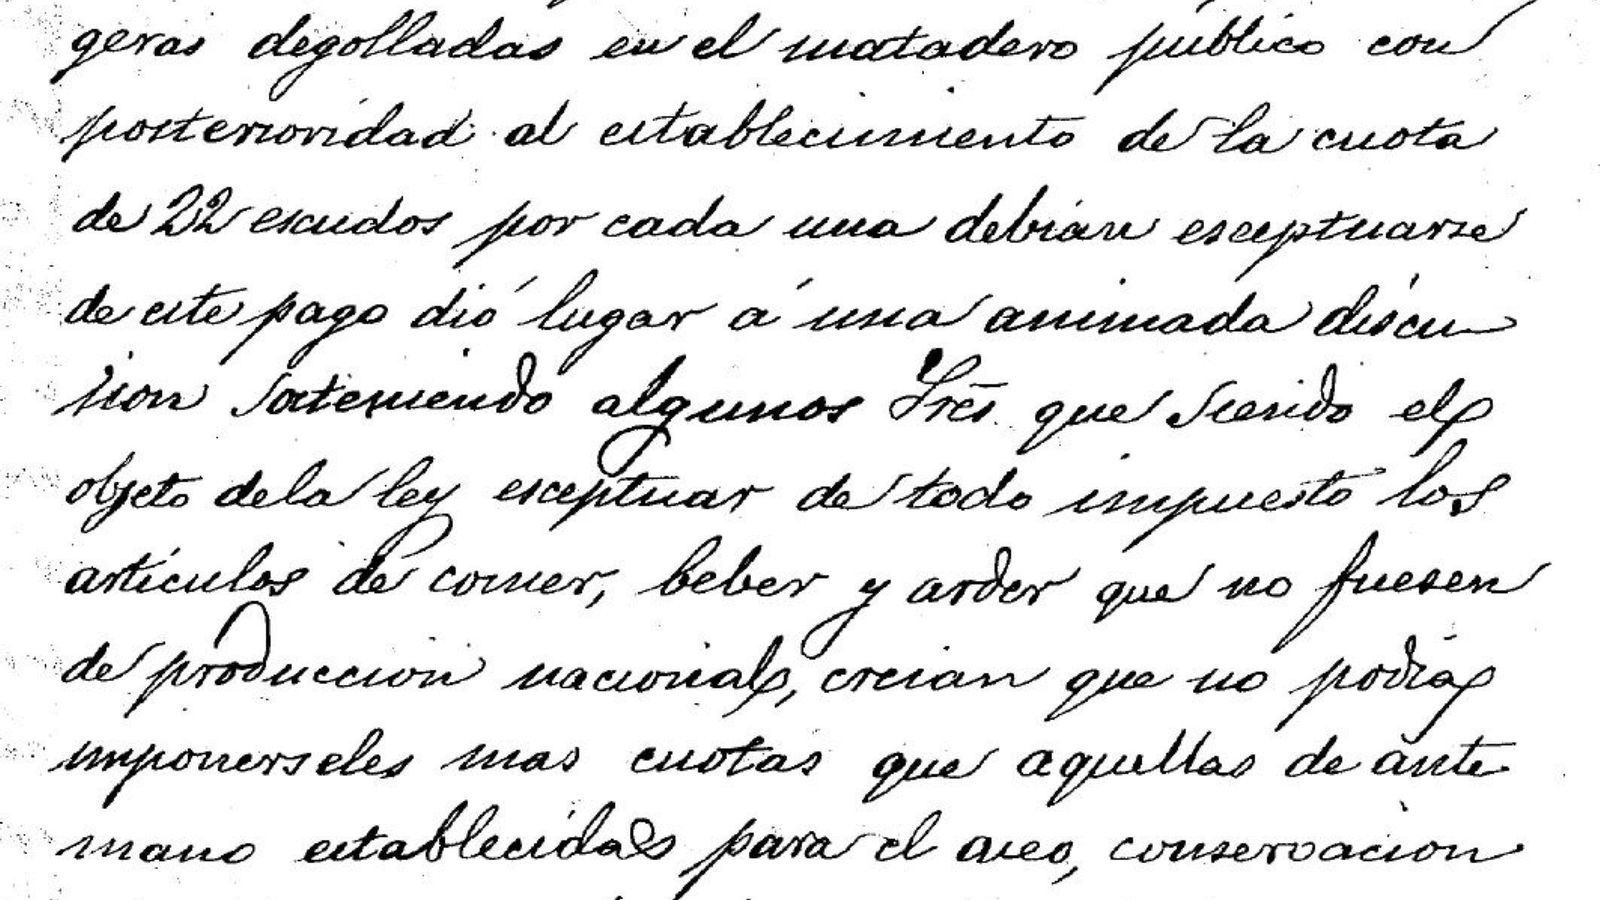 geras degolladas en el matadero público con
posterioridad al establecimiento de la cuota
de 22 escudos por cada una debian esceptuarse
de este pago dió lugar á una animada discu
sion sosteniendo algunos Sres. que siendo el
objeto de la ley esceptuar de todo impuesto los
artículos de comer, beber y arder que no fuesen
de produccion nacional, creian que no podia
imponerseles mas cuotas que aquellas de ante
mano establecidas para el aseo, conservacion